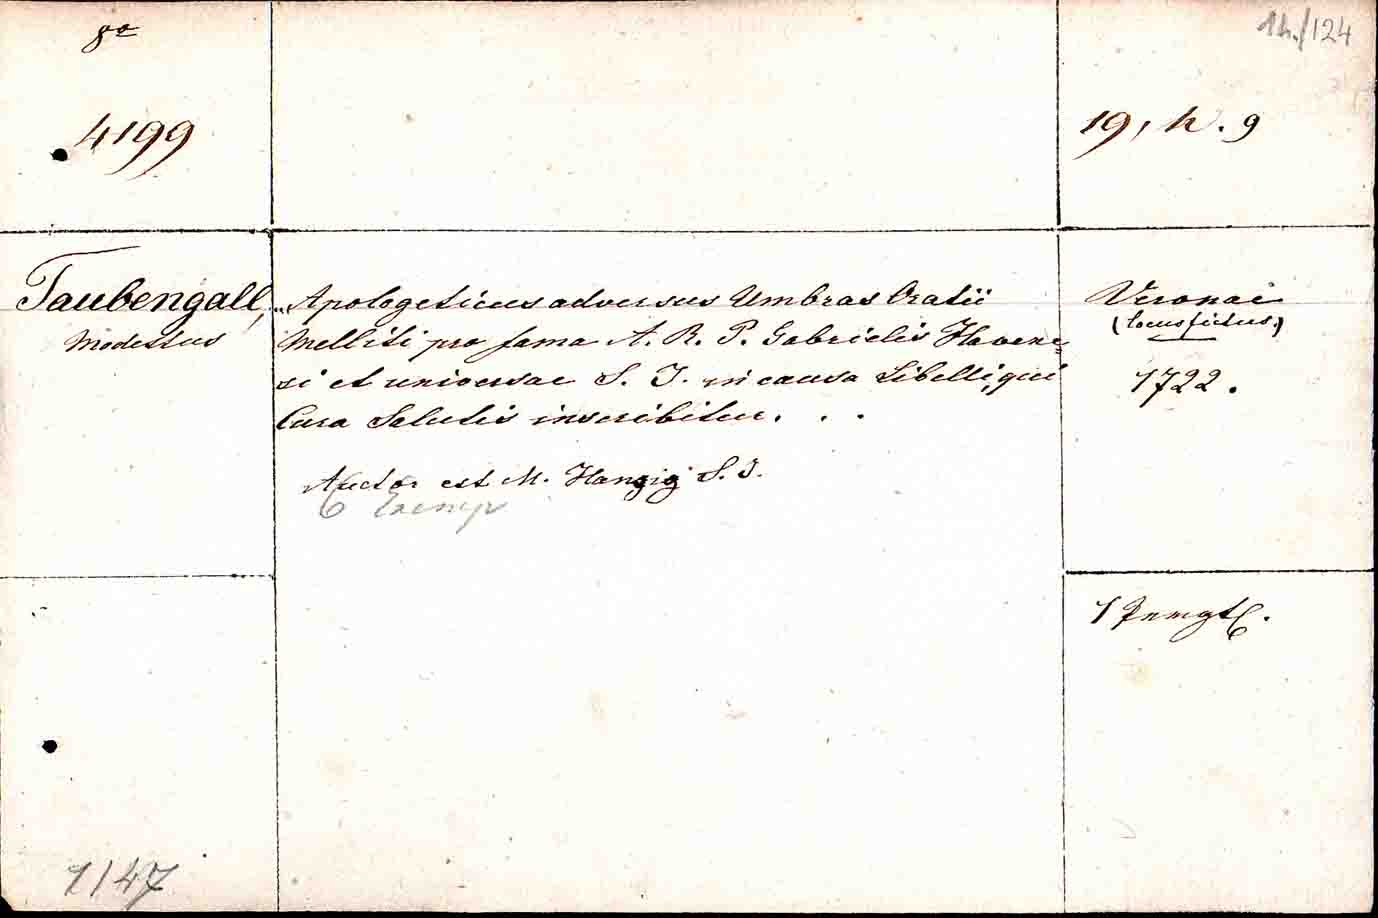 8°
1h./124
4199
19, h. 9
Taubengall,
Modestus
„Apologeticus adversus Umbras Oratii
Melliti pro fama A. R. P. Gabrielis Havene=
si et universae S. J. in causa Libelli, qui
Cura Salutis inscribitur. . .
Auctor est M. Hanzig S. J.
6 Exempl
Veronae
(locus fictus.)
1722.
1 Pergt.
1/47